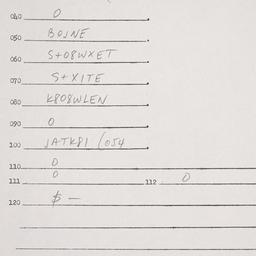 040 0
050 BOJNE
060 S+O8WXET
070 S+XITE
080 K8O8WLEN
090 0
100 JATK81 (054
110 0
111 0 112 0
120 $ —